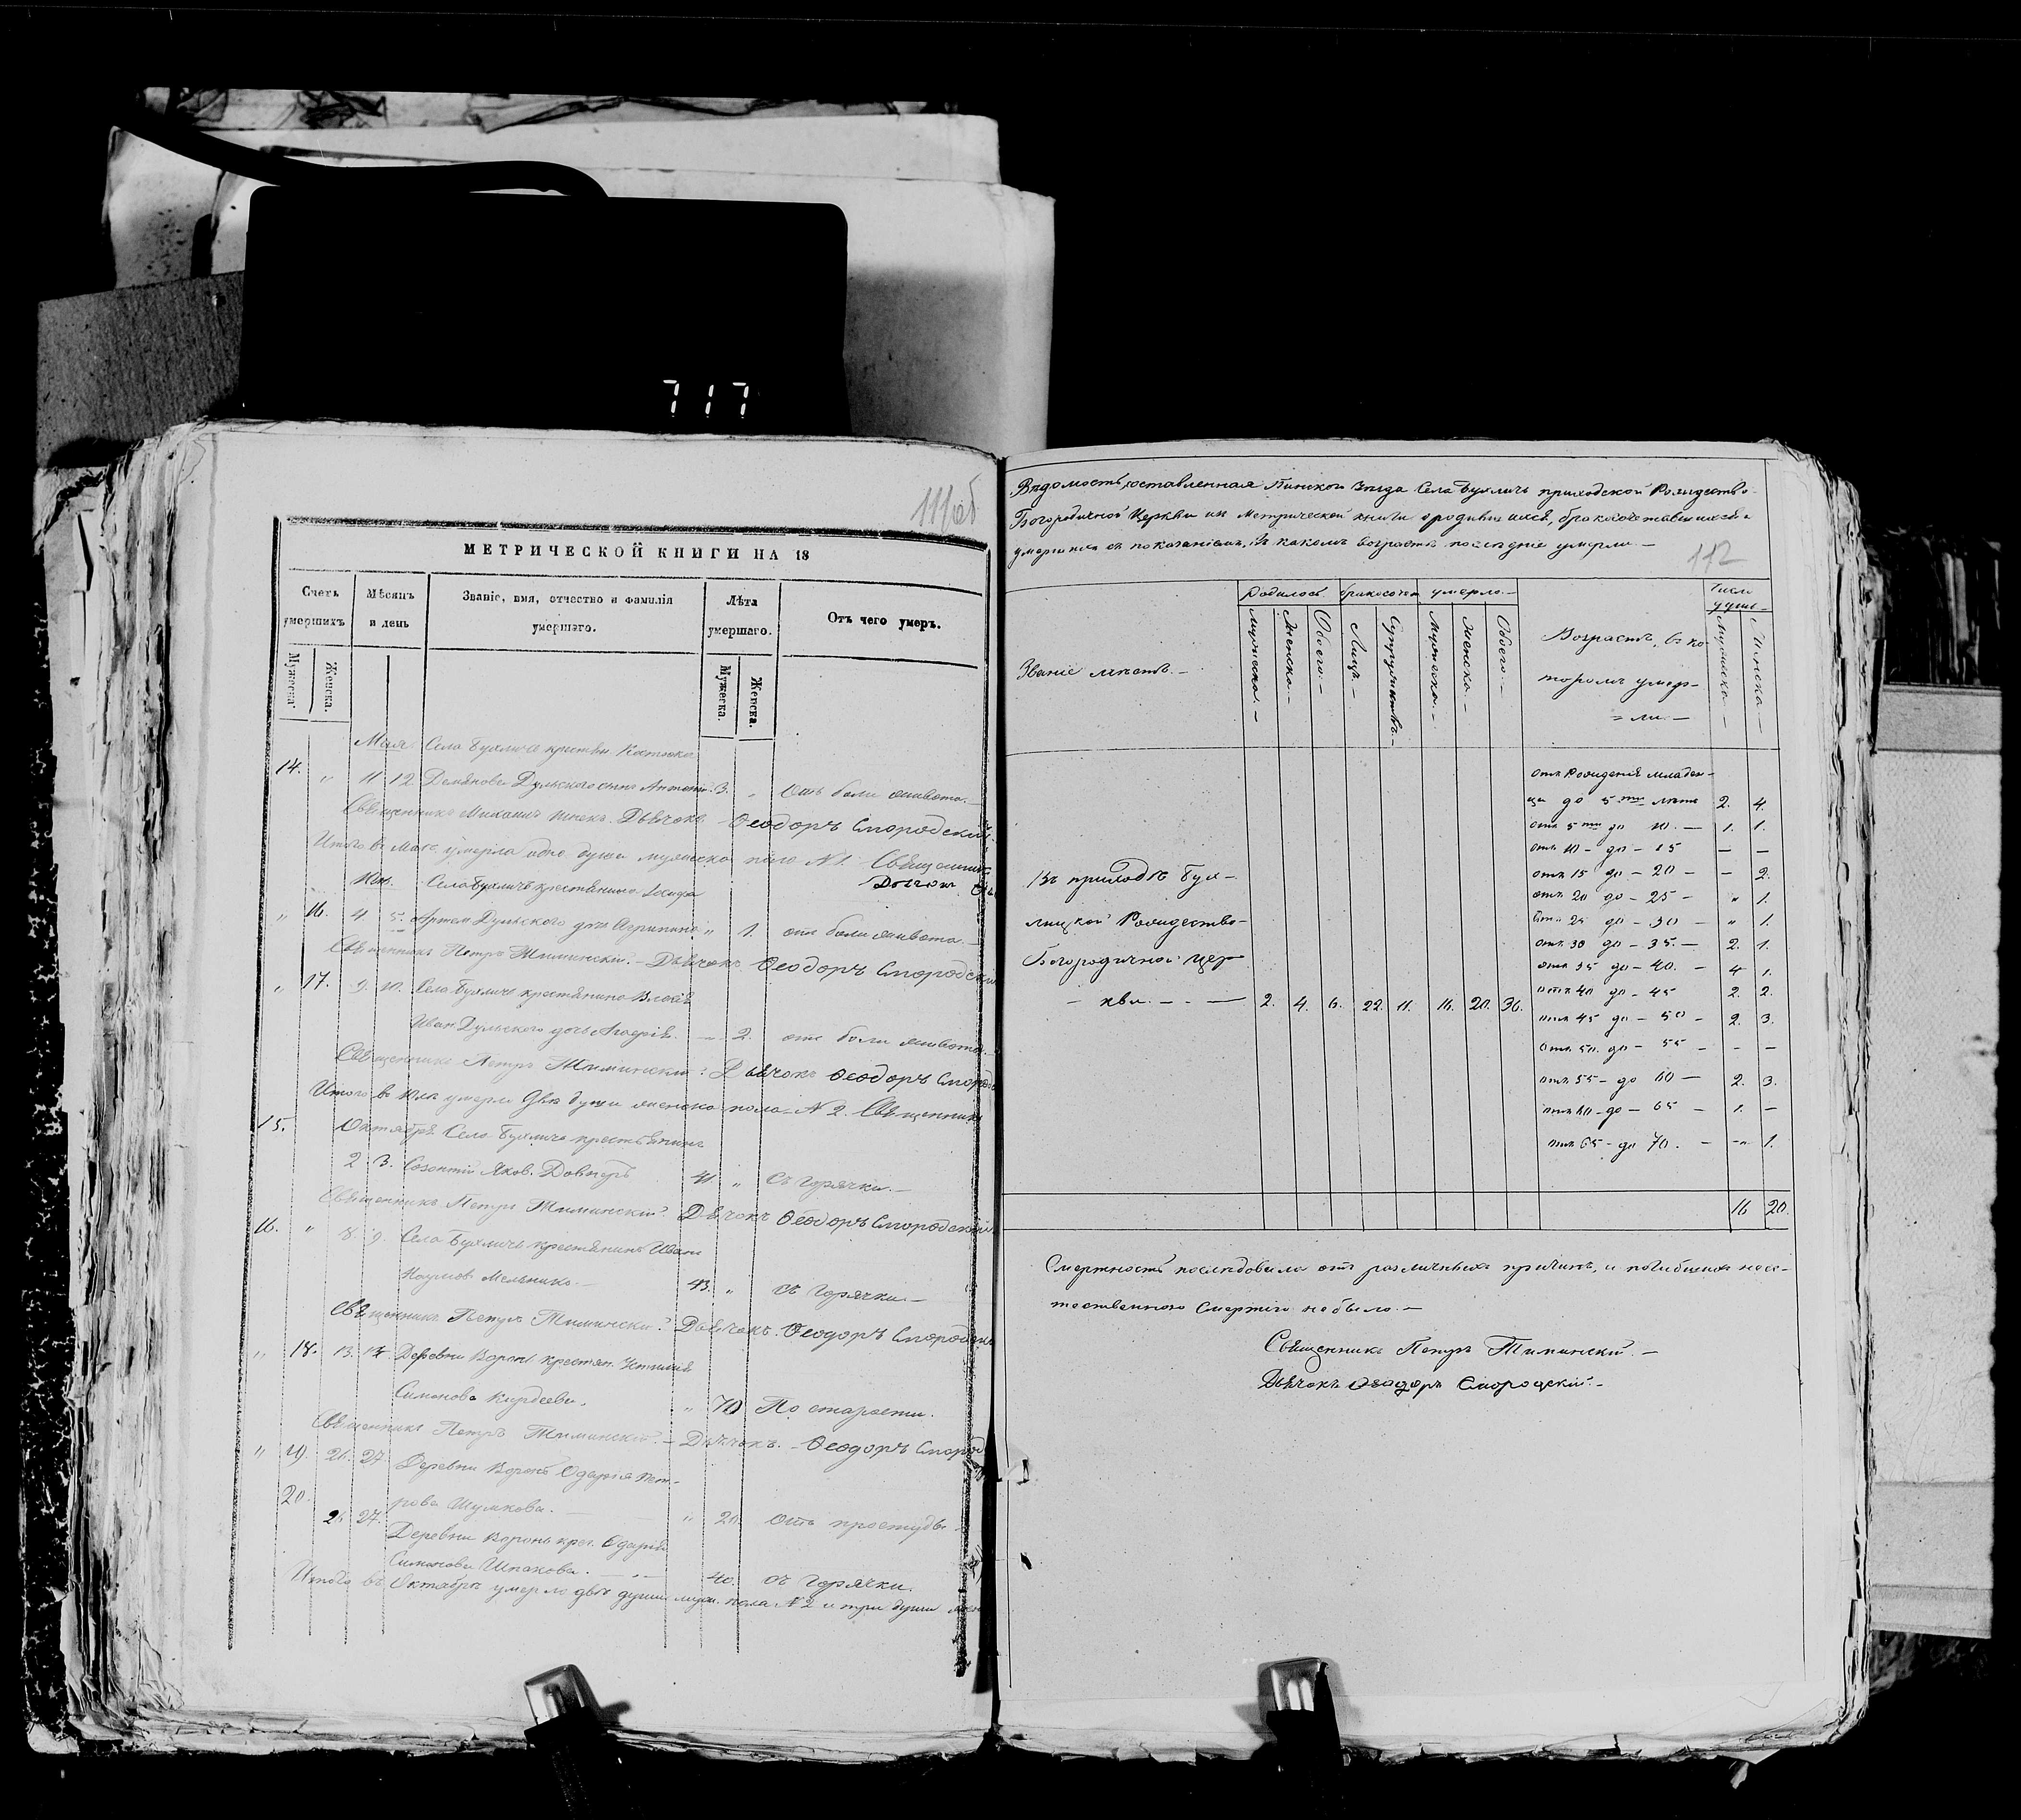 717
111об
МЕТРИЧЕСКОЙ КНИГИ НА 18
Счетъ умершихъ
Мѣсяцъ и день
Званіе, имя, отчество и фамилія умершаго.
Лѣта умершаго.
Отъ чего умеръ.
Мужеска.
Женска.
Мужеска.
Женска.
Мая. Села Бухличъ крестьян.
14. " 11 12 Демянова Дульского сына Антонъ 3. " Отъ боли живота.
Священникъ Михаилъ Дьячокъ Ѳеодоръ Смородскій
Итого въ Маѣ умерла одна душа мужеска пола N 1. Священникъ
Дьячокъ
Села Бухличъ крестьянина
" 16. 4. 5. Артем. Дульского дочь Агрипина " 1. отъ боли живота.
Священникъ Петръ Тиминскій. Дьячокъ Ѳеодоръ Смородскій
" 17. 9. 10. Села Бухличъ крестьянина
Иван. Дульского дочь 2. отъ боли живота.
Священникъ Петръ Тиминскій. Дьячокъ Ѳеодоръ Смород
Итого въ умерло двѣ души женска пола N 2. Священникъ
15. Октября. Села Бухличъ крестьянинъ
2 3. Созонтій Яков. 41 " Съ горячки.
Священникъ Петръ Тиминскій. Дьячокъ Ѳеодоръ Смородскій
16. " 8. 9. Села Бухличъ крестьянинъ Иванъ
Наумов. Мельнико. 43. " Съ горячки.
Священникъ Петръ Тиминскій. Дьячокъ. Ѳеодоръ Смородск
" 18. 13. 14. Деревни Воронь крестян.
Симонова " 70 По старости.
Священникъ Петръ Тиминскій. Дьячокъ. Ѳеодоръ Смород
" 19. 26. 27. Деревни Воронь Одарія Пет-
рова Шумкова. " 20. Отъ простуды
20. 26. 27. Деревни Воронь крес. Одарія
Симонова Шпакова. 40. съ горячки.
Итого въ Октябрѣ умерло двѣ души муж. пола N 2 и три души
Вѣдомость, составленная Пинскаго Уѣзда Села Бухличъ приходской Рождество-
Богородичной Церкви изъ Метрической книги о родившихся, бракосочетавшихся и
умершихъ съ показаніемъ, въ какомъ возрастѣ послѣдніе умерли.
112
Званіе мѣстъ.
Родилось
бракосочет.
умерло.
Возрастъ, въ ко
торомъ умер-
= ли.
Число душъ
Мужеска.
Женска.
Обоего.
Лицъ.
Супружествъ.
Мужеска.
Женска.
Обоего.
Мужеска.
Женска
Въ приходѣ Бух-
лицкой Рождество-
Богородичной Цер-
кви. 2. 4. 6. 22. 11. 16. 20. 36.
Отъ Рожденія младен-
ца до 5ти лѣтъ 2. 4.
отъ 5ти до 10. 1. 1.
отъ 10 до 15 — —
отъ 15 до 20 — 2.
отъ 20 до 25 " 1.
отъ 25 до 30 " 1.
отъ 30 до 35. 2. 1.
отъ 35 до 40. 4 1.
отъ 40 до 45 2. 2.
отъ 45 до 50 2. 3.
отъ 50. до 55 - -
отъ 55 до 60 2. 3.
отъ 60 до 65 1. -
отъ 65 до 70. - 1.
16 20.
Смертность послѣдовала отъ различныхъ причинъ, и погибшихъ неес-
тественною Смертію не было.
Священникъ Петръ Тиминскій.
Дьячокъ Ѳеодоръ Смородскій.